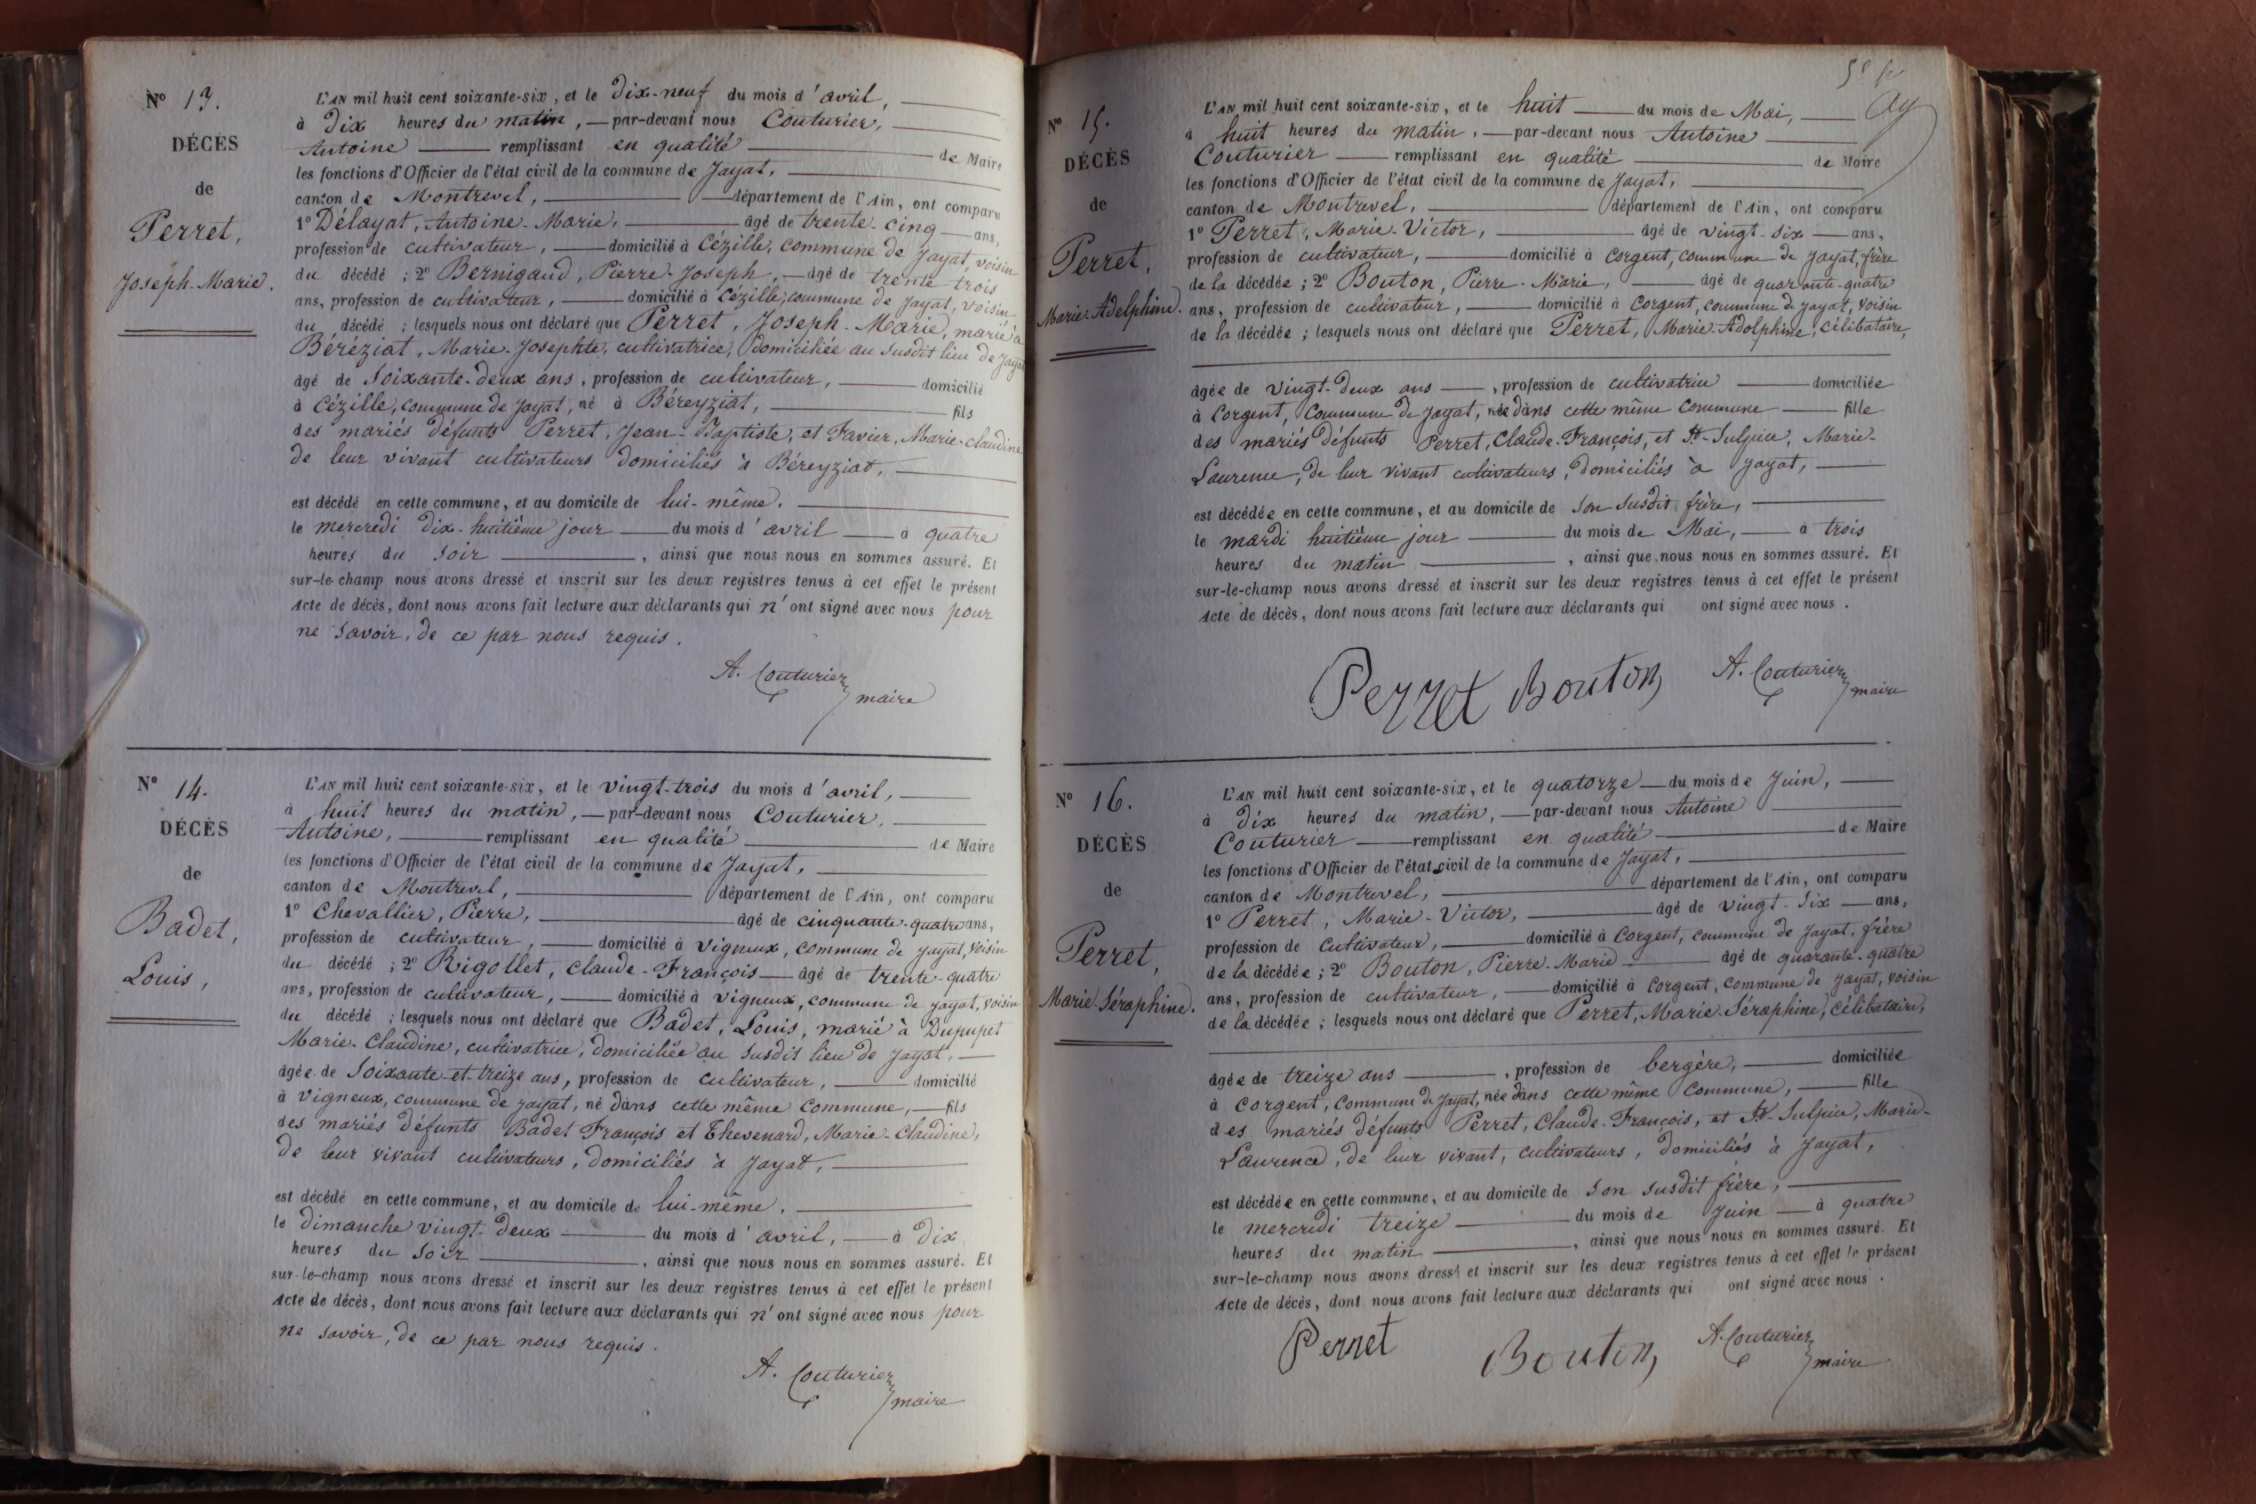 Nº 13.
DÉCÈS
de
Perret,
Joseph-Marie.
L'AN mil huit cent soixante-six, et le dix-neuf du mois d'avril,
à dix heures du matin, par-devant nous Couturier,
Antoine remplissant en qualité de Maire
les fonctions d'Officier de l'état civil de la commune de Jayat,
canton de Montrevel, département de l'Ain, ont comparu
1º Délayat, Antoine-Marie, âgé de trente-cinq ans,
profession de cultivateur, domicilié à Cézille, commune de Jayat, voisin
du décédé ; 2º Bernigaud, Pierre-Joseph, âgé de trente trois
ans, profession de cultivateur, domicilié à Cézille, commune de Jayat, voisin
du décédé ; lesquels nous ont déclaré que Perret, Joseph-Marie, marié à
Béréziat, Marie-Josephte, cultivatrice, domiciliée au susdit lieu de Jayat
âgé de soixante-deux ans, profession de cultivateur, domicilié
à Cézille, commune de Jayat, né à Béreyziat, fils
des mariés défunts Perret, Jean-Baptiste, et Favier, Marie-Claudine
de leur vivant cultivateurs domiciliés à Béreyziat,
est décédé en cette commune, et au domicile de lui-même.
le mercredi dix-huitième jour du mois d'avril à quatre
heures du soir, ainsi que nous nous en sommes assuré. Et
sur-le-champ nous avons dressé et inscrit sur les deux registres tenus à cet effet le présent
Acte de décès, dont nous avons fait lecture aux déclarants qui n'ont signé avec nous pour
ne savoir, de ce par nous requis.
A. Couturier
maire
Nº 14.
DÉCÈS
de
Badet,
Louis,
L'AN mil huit cent soixante-six, et le vingt-trois du mois d'avril,
à huit heures du matin, par-devant nous Couturier,
Antoine, remplissant en qualité de Maire
les fonctions d'Officier de l'état civil de la commune de Jayat,
canton de Montrevel, département de l'Ain, ont comparu
1º Chevallier, Pierre, âgé de cinquante-quatre ans,
profession de cultivateur, domicilié à Vigneux, commune de Jayat, voisin
du décédé ; 2º Rigollet, Claude-François âgé de trente-quatre
ans, profession de cultivateur, domicilié à Vigneux, commune de Jayat, voisin
du décédé ; lesquels nous ont déclaré que Badet, Louis, marié à Dupupet
Marie-Claudine, cultivatrice, domiciliée au susdit lieu de Jayat,
âgée de soixante-et-treize ans, profession de cultivateur, domicilié
à Vigneux, commune de Jayat, né dans cette même commune, fils
des mariés défunts Badet François et Thevenard, Marie-Claudine,
de leur vivant cultivateurs, domiciliés à Jayat,
est décédé en cette commune, et au domicile de lui-même.
le dimanche vingt-deux du mois d'avril, à dix
heures du soir, ainsi que nous nous en sommes assuré. Et
sur-le-champ nous avons dressé et inscrit sur les deux registres tenus à cet effet le présent
Acte de décès, dont nous avons fait lecture aux déclarants qui n'ont signé avec nous pour
ne savoir, de ce par nous requis.
A. Couturier
maire
Nº 15.
DÉCÈS
de
Perret,
Marie-Adelphine.
L'AN mil huit cent soixante-six, et le huit du mois de Mai,
à huit heures du matin, par-devant nous Antoine
Couturier remplissant en qualité de Maire
les fonctions d'Officier de l'état civil de la commune de Jayat,
canton de Montrevel, département de l'Ain, ont comparu
1º Perret, Marie-Victor, âgé de vingt-six ans,
profession de cultivateur, domicilié à Corgent, commune de Jayat, frère
de la décédée ; 2º Bouton, Pierre-Marie, âgé de quarante-quatre
ans, profession de cultivateur, domicilié à Corgent, commune de Jayat, voisin
de la décédée ; lesquels nous ont déclaré que Perret, Marie-Adolphine, célibataire,
âgée de vingt-deux ans, profession de cultivatrice domiciliée
à Corgent, commune de Jayat, née dans cette même commune fille
des mariés défunts Perret, Claude-François, et St-Sulpice, Marie-
Laurence, de leur vivant cultivateurs, domiciliés à Jayat,
est décédée en cette commune, et au domicile de son susdit frère,
le mardi huitième jour du mois de Mai, à trois
heures du matin, ainsi que nous nous en sommes assuré. Et
sur-le-champ nous avons dressé et inscrit sur les deux registres tenus à cet effet le présent
Acte de décès, dont nous avons fait lecture aux déclarants qui ont signé avec nous.
Perret Bouton A. Couturier
maire
Nº 16.
DÉCÈS
de
Perret,
Marie-Séraphine.
L'AN mil huit cent soixante-six, et le quatorze du mois de Juin,
à dix heures du matin, par-devant nous Antoine
Couturier remplissant en qualité de Maire
les fonctions d'Officier de l'état civil de la commune de Jayat,
canton de Montrevel, département de l'Ain, ont comparu
1º Perret, Marie-Victor, âgé de vingt-six ans,
profession de cultivateur, domicilié à Corgent, commune de Jayat, frère
de la décédée ; 2º Bouton, Pierre-Marie âgé de quarante-quatre
ans, profession de cultivateur, domicilié à Corgent, commune de Jayat, voisin
de la décédée ; lesquels nous ont déclaré que Perret, Marie-Séraphine, célibataire,
âgée de treize ans, profession de bergère, domiciliée
à Corgent, commune de Jayat, née dans cette même commune, fille
des mariés défunts Perret, Claude-François, et St-Sulpice, Marie-
Laurence, de leur vivant, cultivateurs, domiciliés à Jayat,
est décédée en cette commune, et au domicile de son susdit frère,
le mercredi treize du mois de Juin à quatre
heures du matin, ainsi que nous nous en sommes assuré. Et
sur-le-champ nous avons dressé et inscrit sur les deux registres tenus à cet effet le présent
Acte de décès, dont nous avons fait lecture aux déclarants qui ont signé avec nous.
Perret Bouton A. Couturier
maire